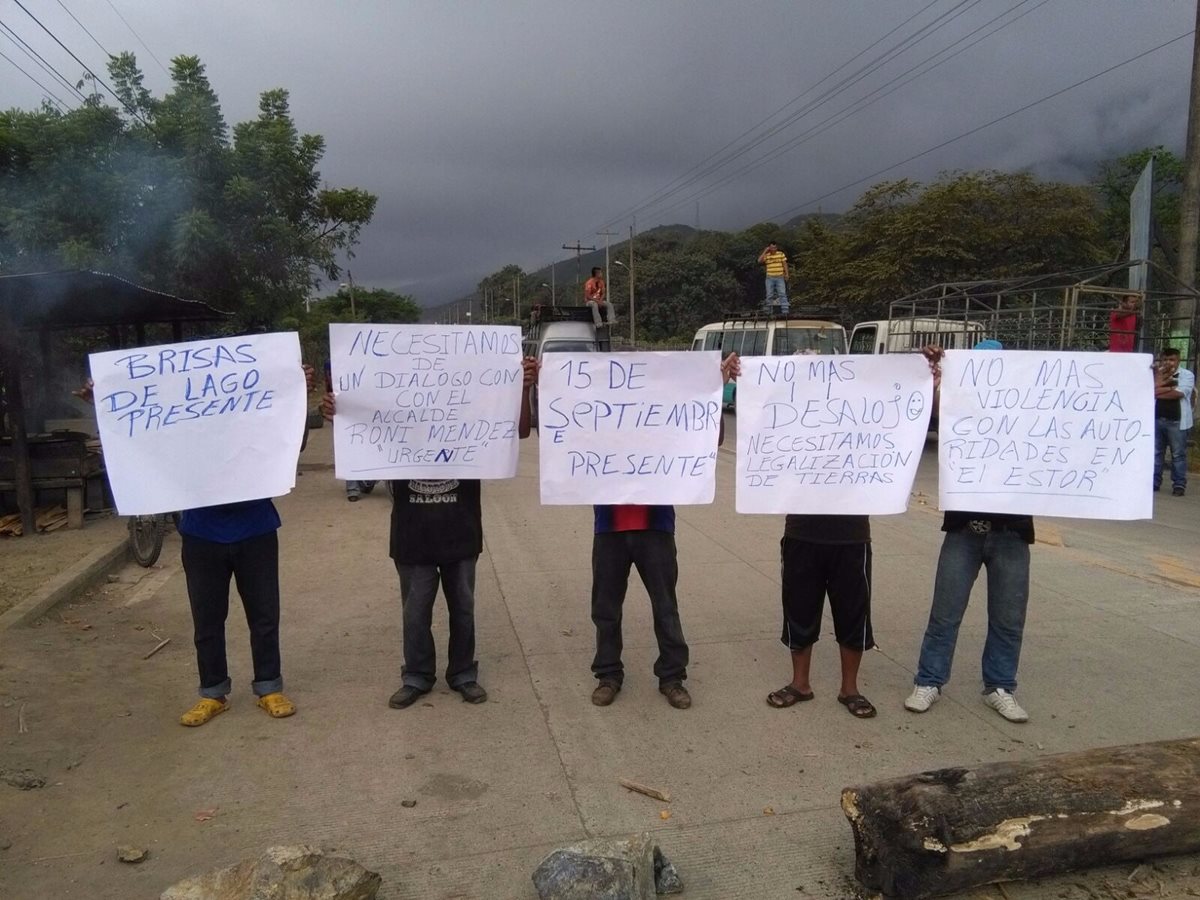 BRISAS
DE LAGO
PRESENTE
NECESITAMOS
DE
UN DIALOGO CON
CON EL
ALCALDE
RONI MENDEZ
"URGENTE"
SALOON
15 DE
SEPTIEMBR
E
PRESENTE"
NO MAS
DESALOJO
NECESITAMOS
LEGALIZACIÓN
DE TIERRAS
NO MAS
VIOLENCIA
CON LAS AUTO-
RIDADES EN
"EL ESTOR"